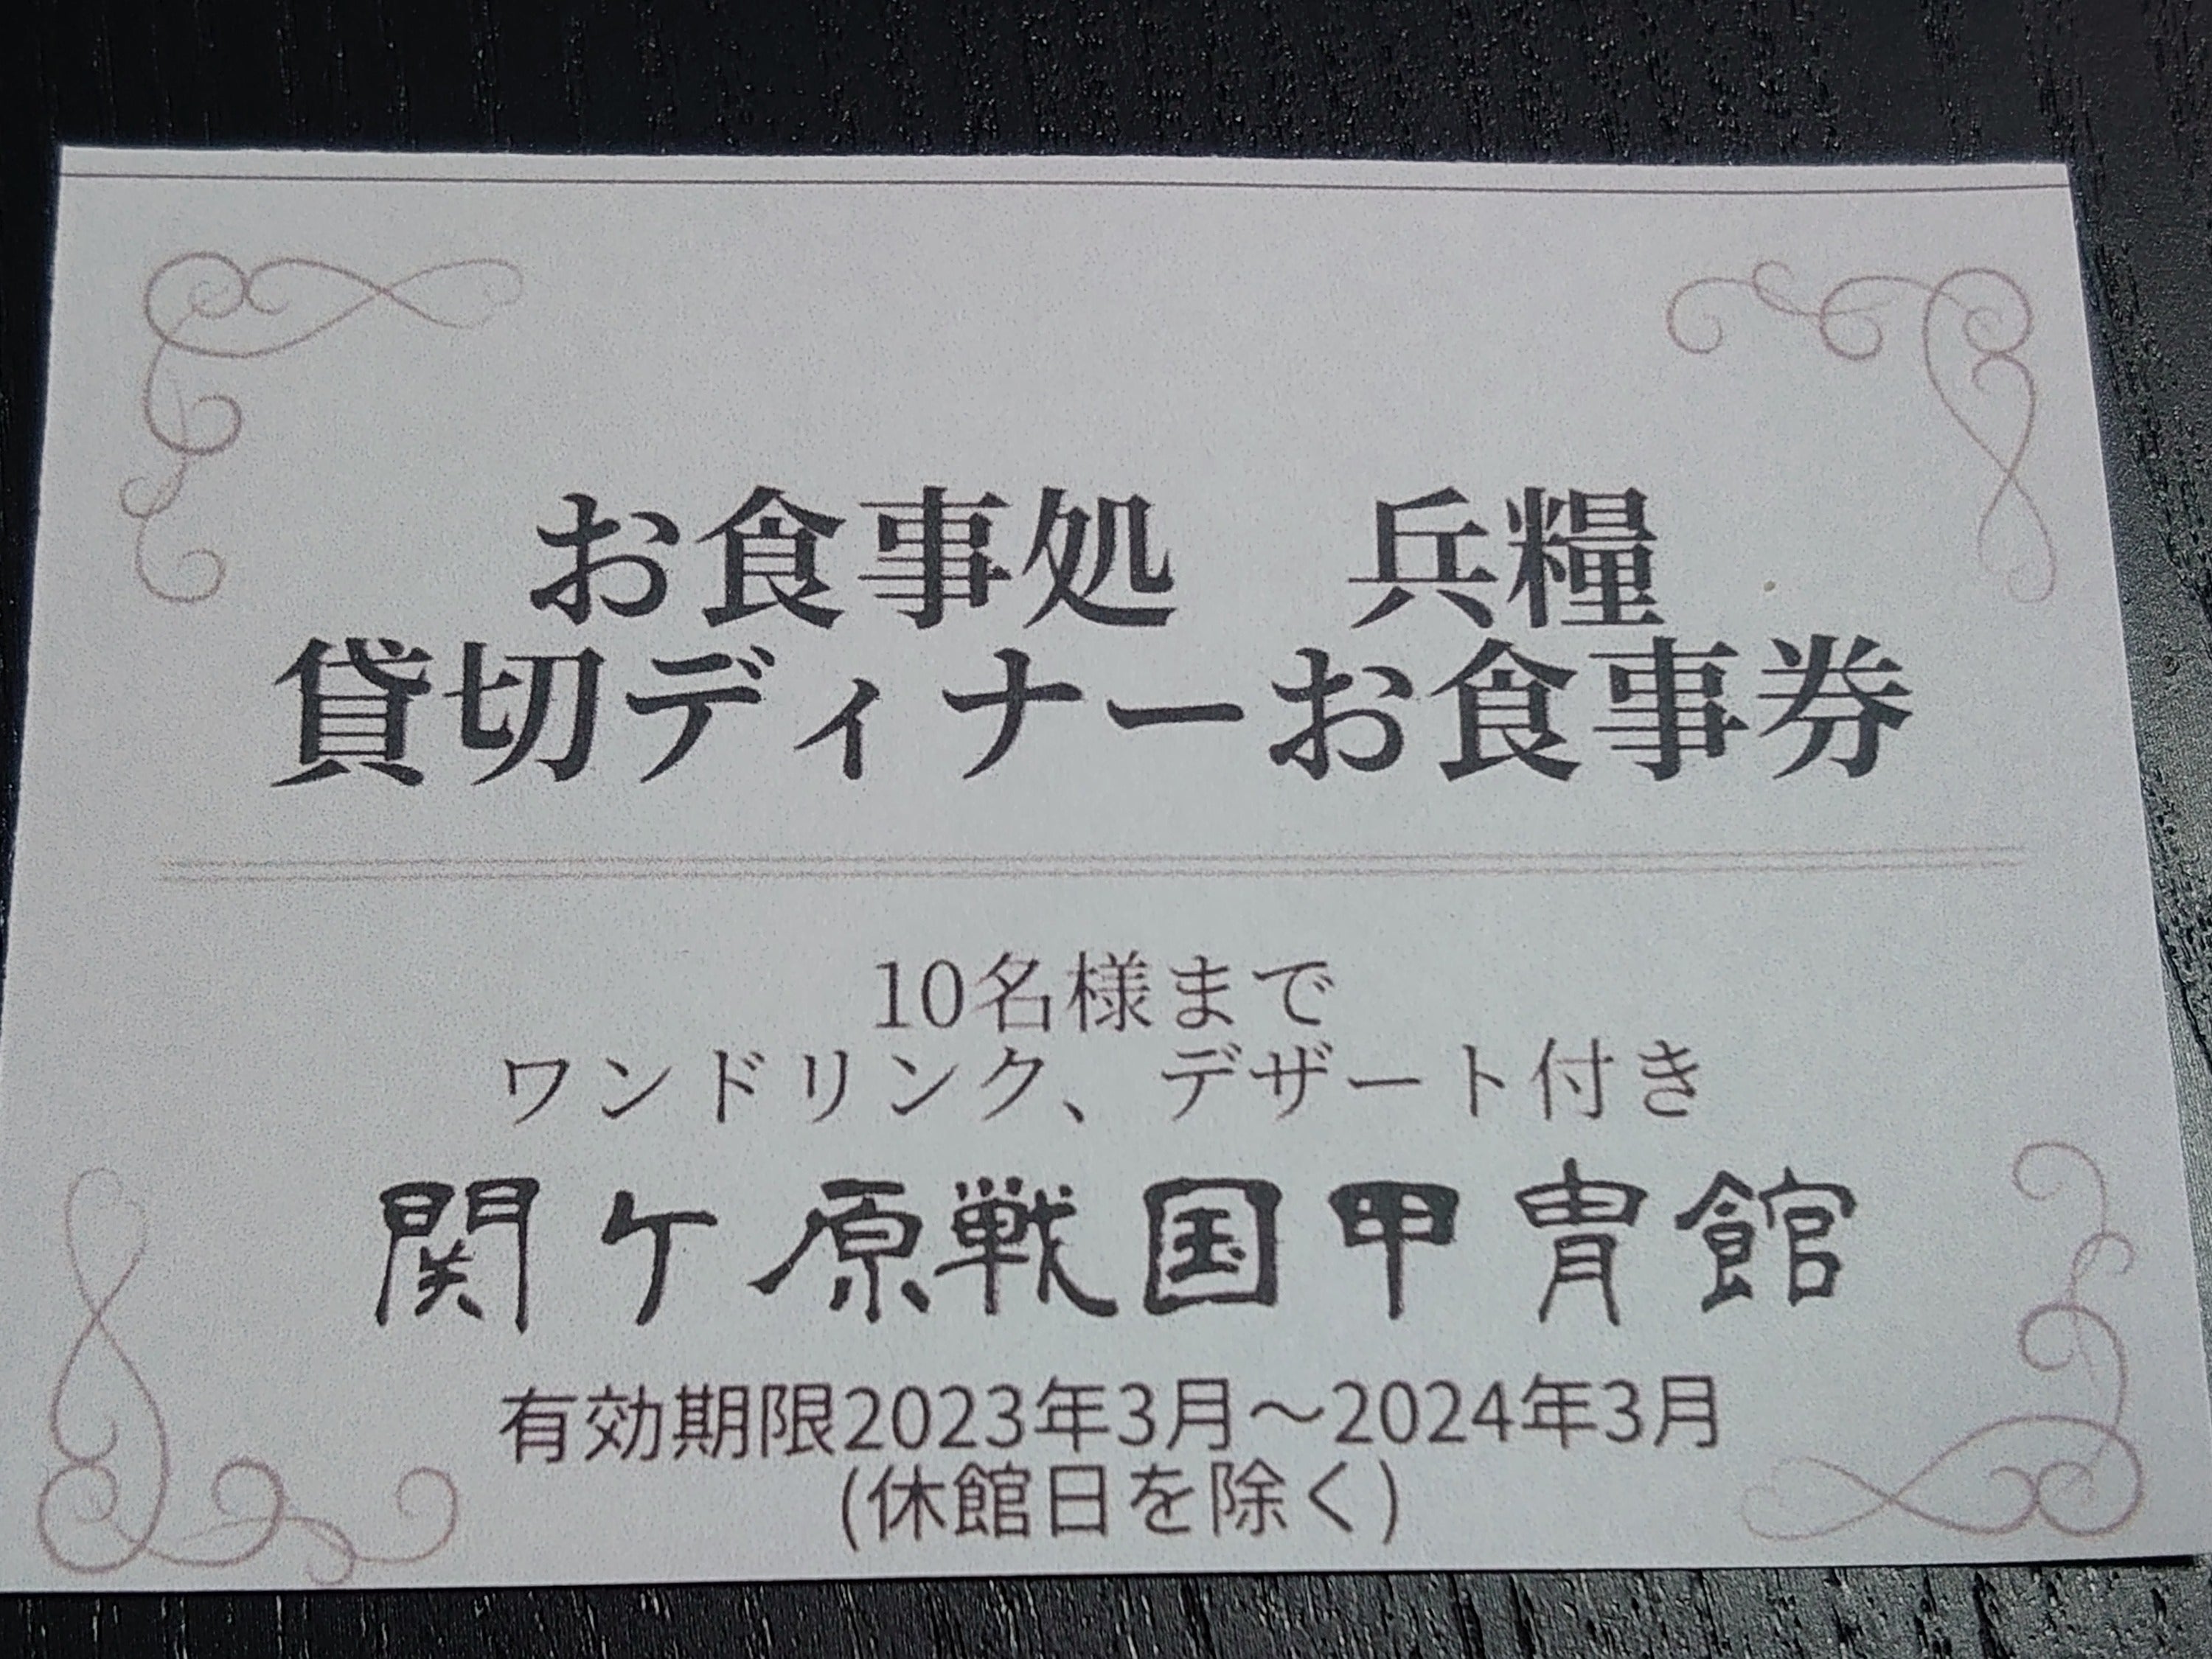 お食事処　兵糧
貸切ディナーお食事券
10名様まで
ワンドリンク、デザート付き
関ケ原戦国甲冑館
有効期限2023年3月～2024年3月
(休館日を除く)